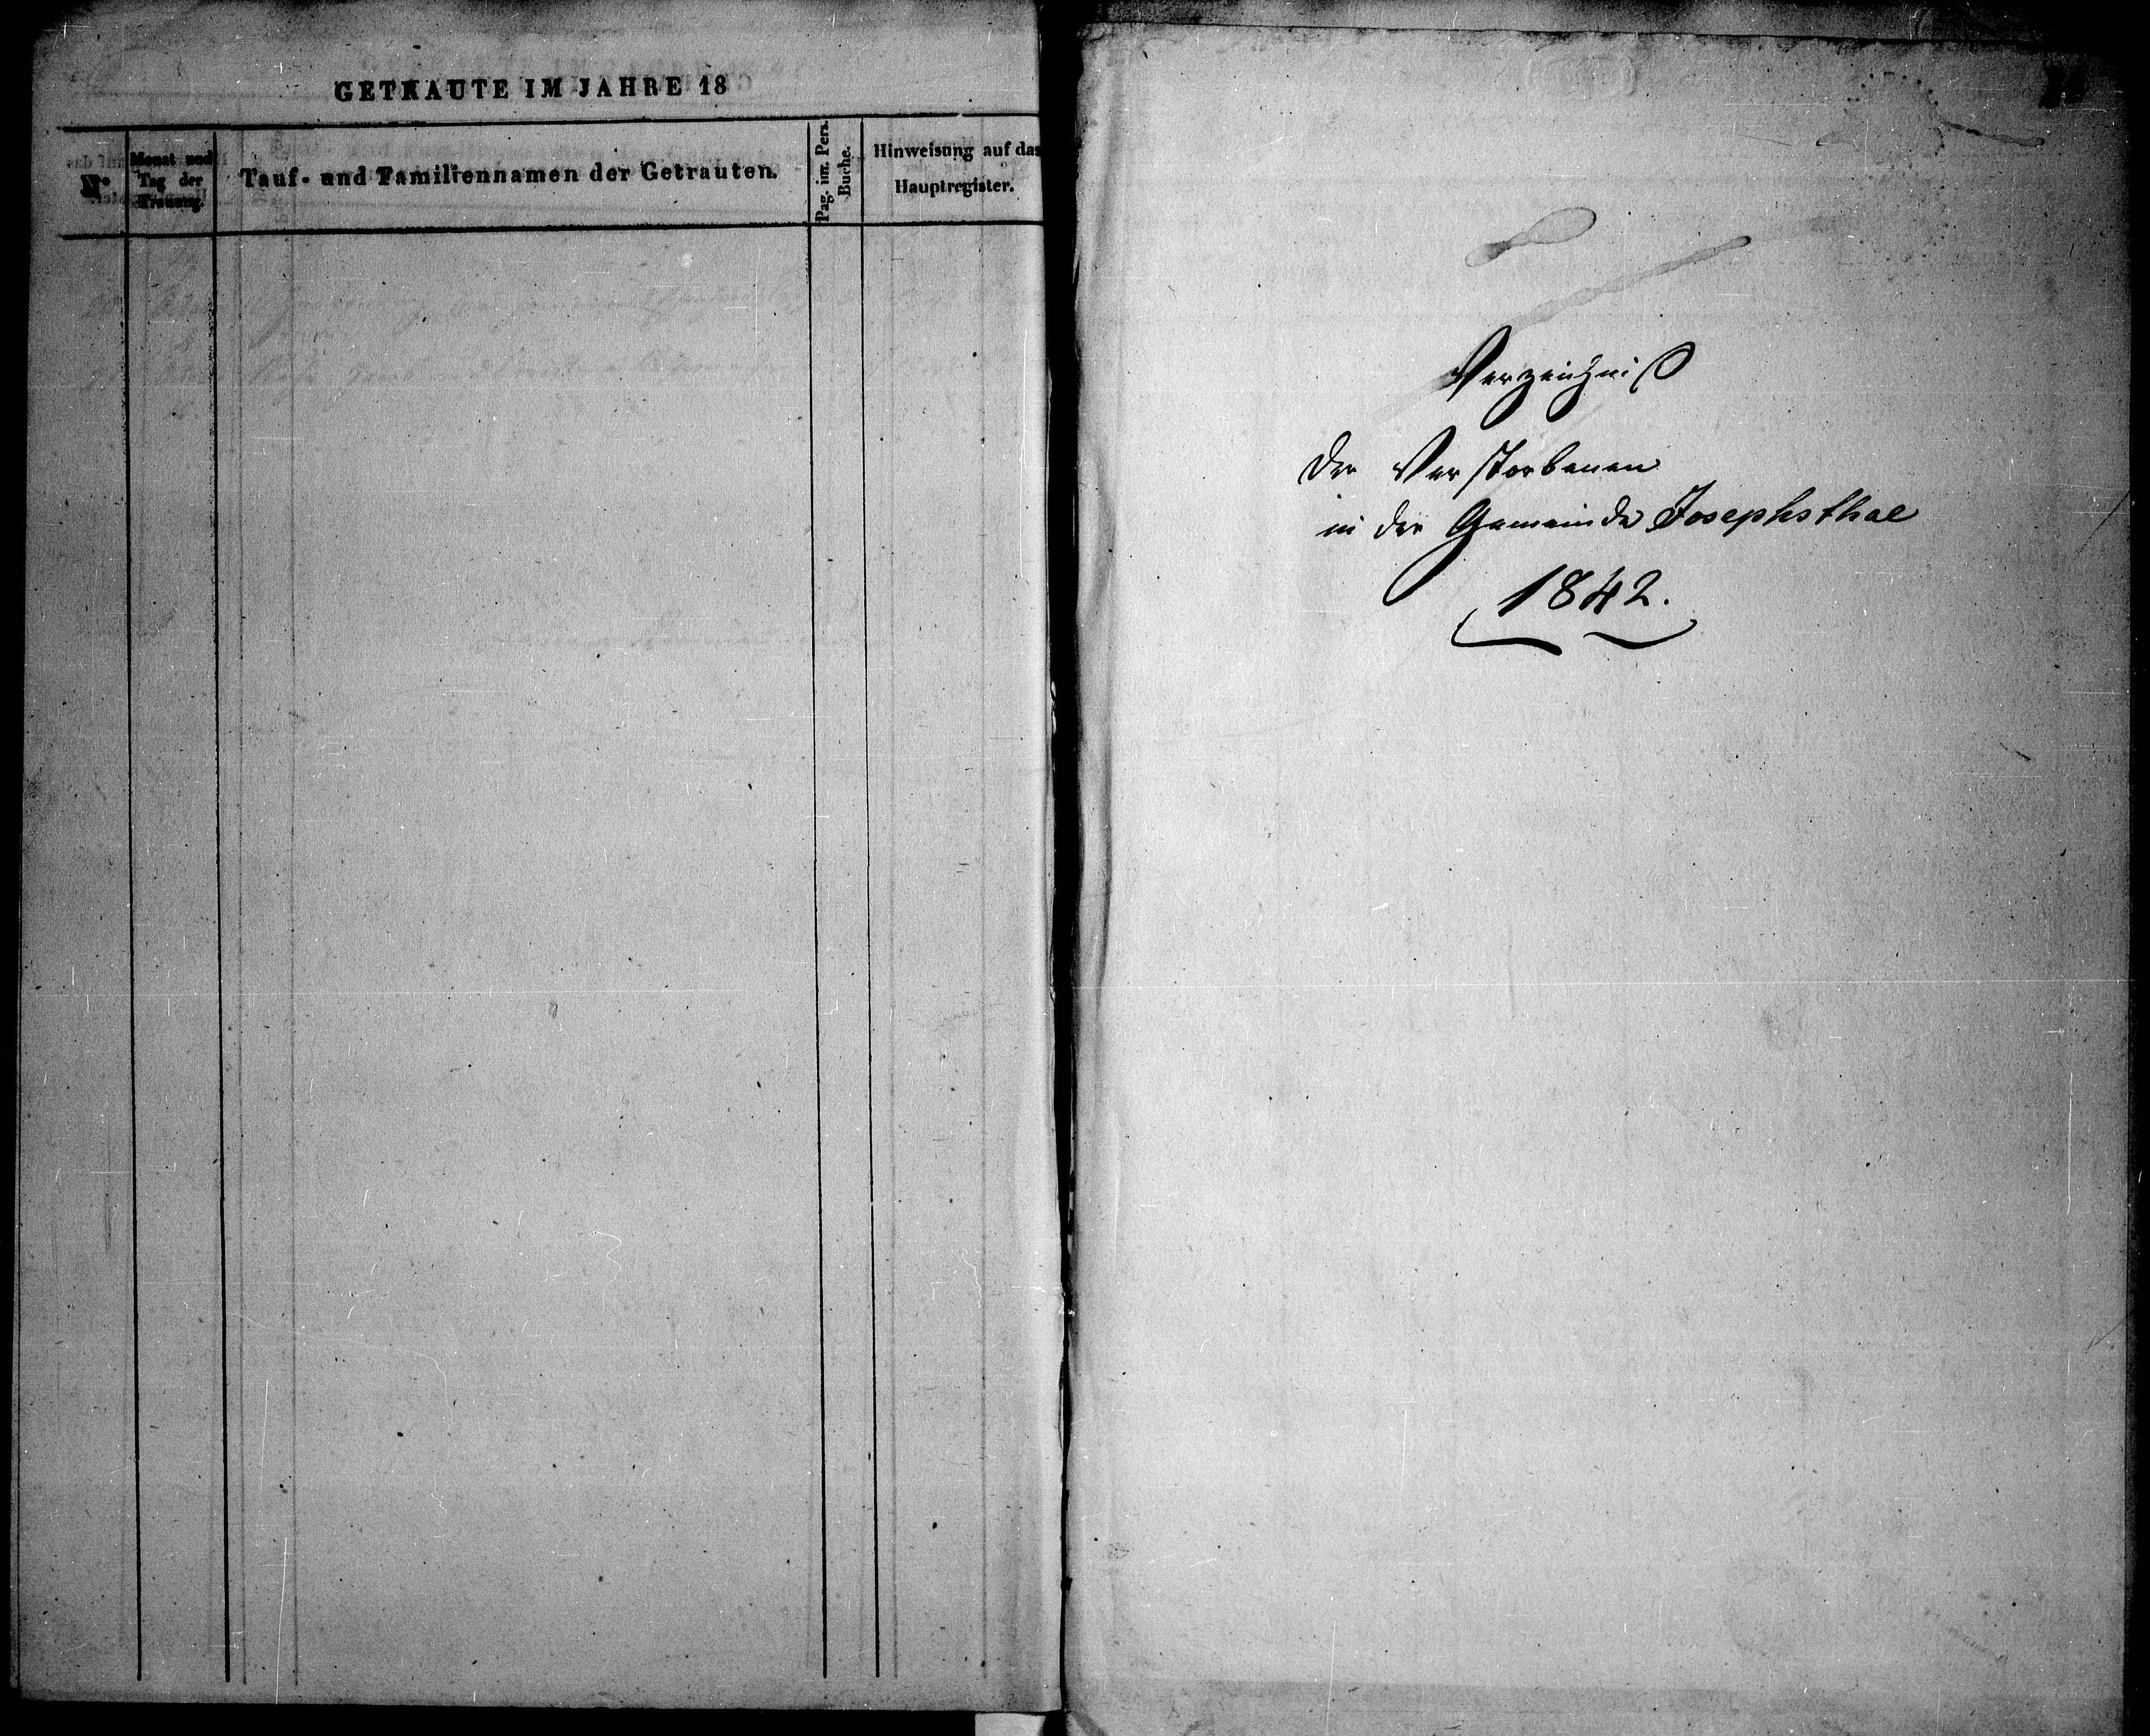 GETRAUTE IM JAHRE 18
No
Monat und
Tag der
Trauung.
Tauf- und Familiennamen der Getrauten.
Pag. im. Pers.
Buche.
Hinweisung auf das
Hauptregister.
Verzeichniß
der Verstorbenen
in der Gemeinde Josephsthal
1842.